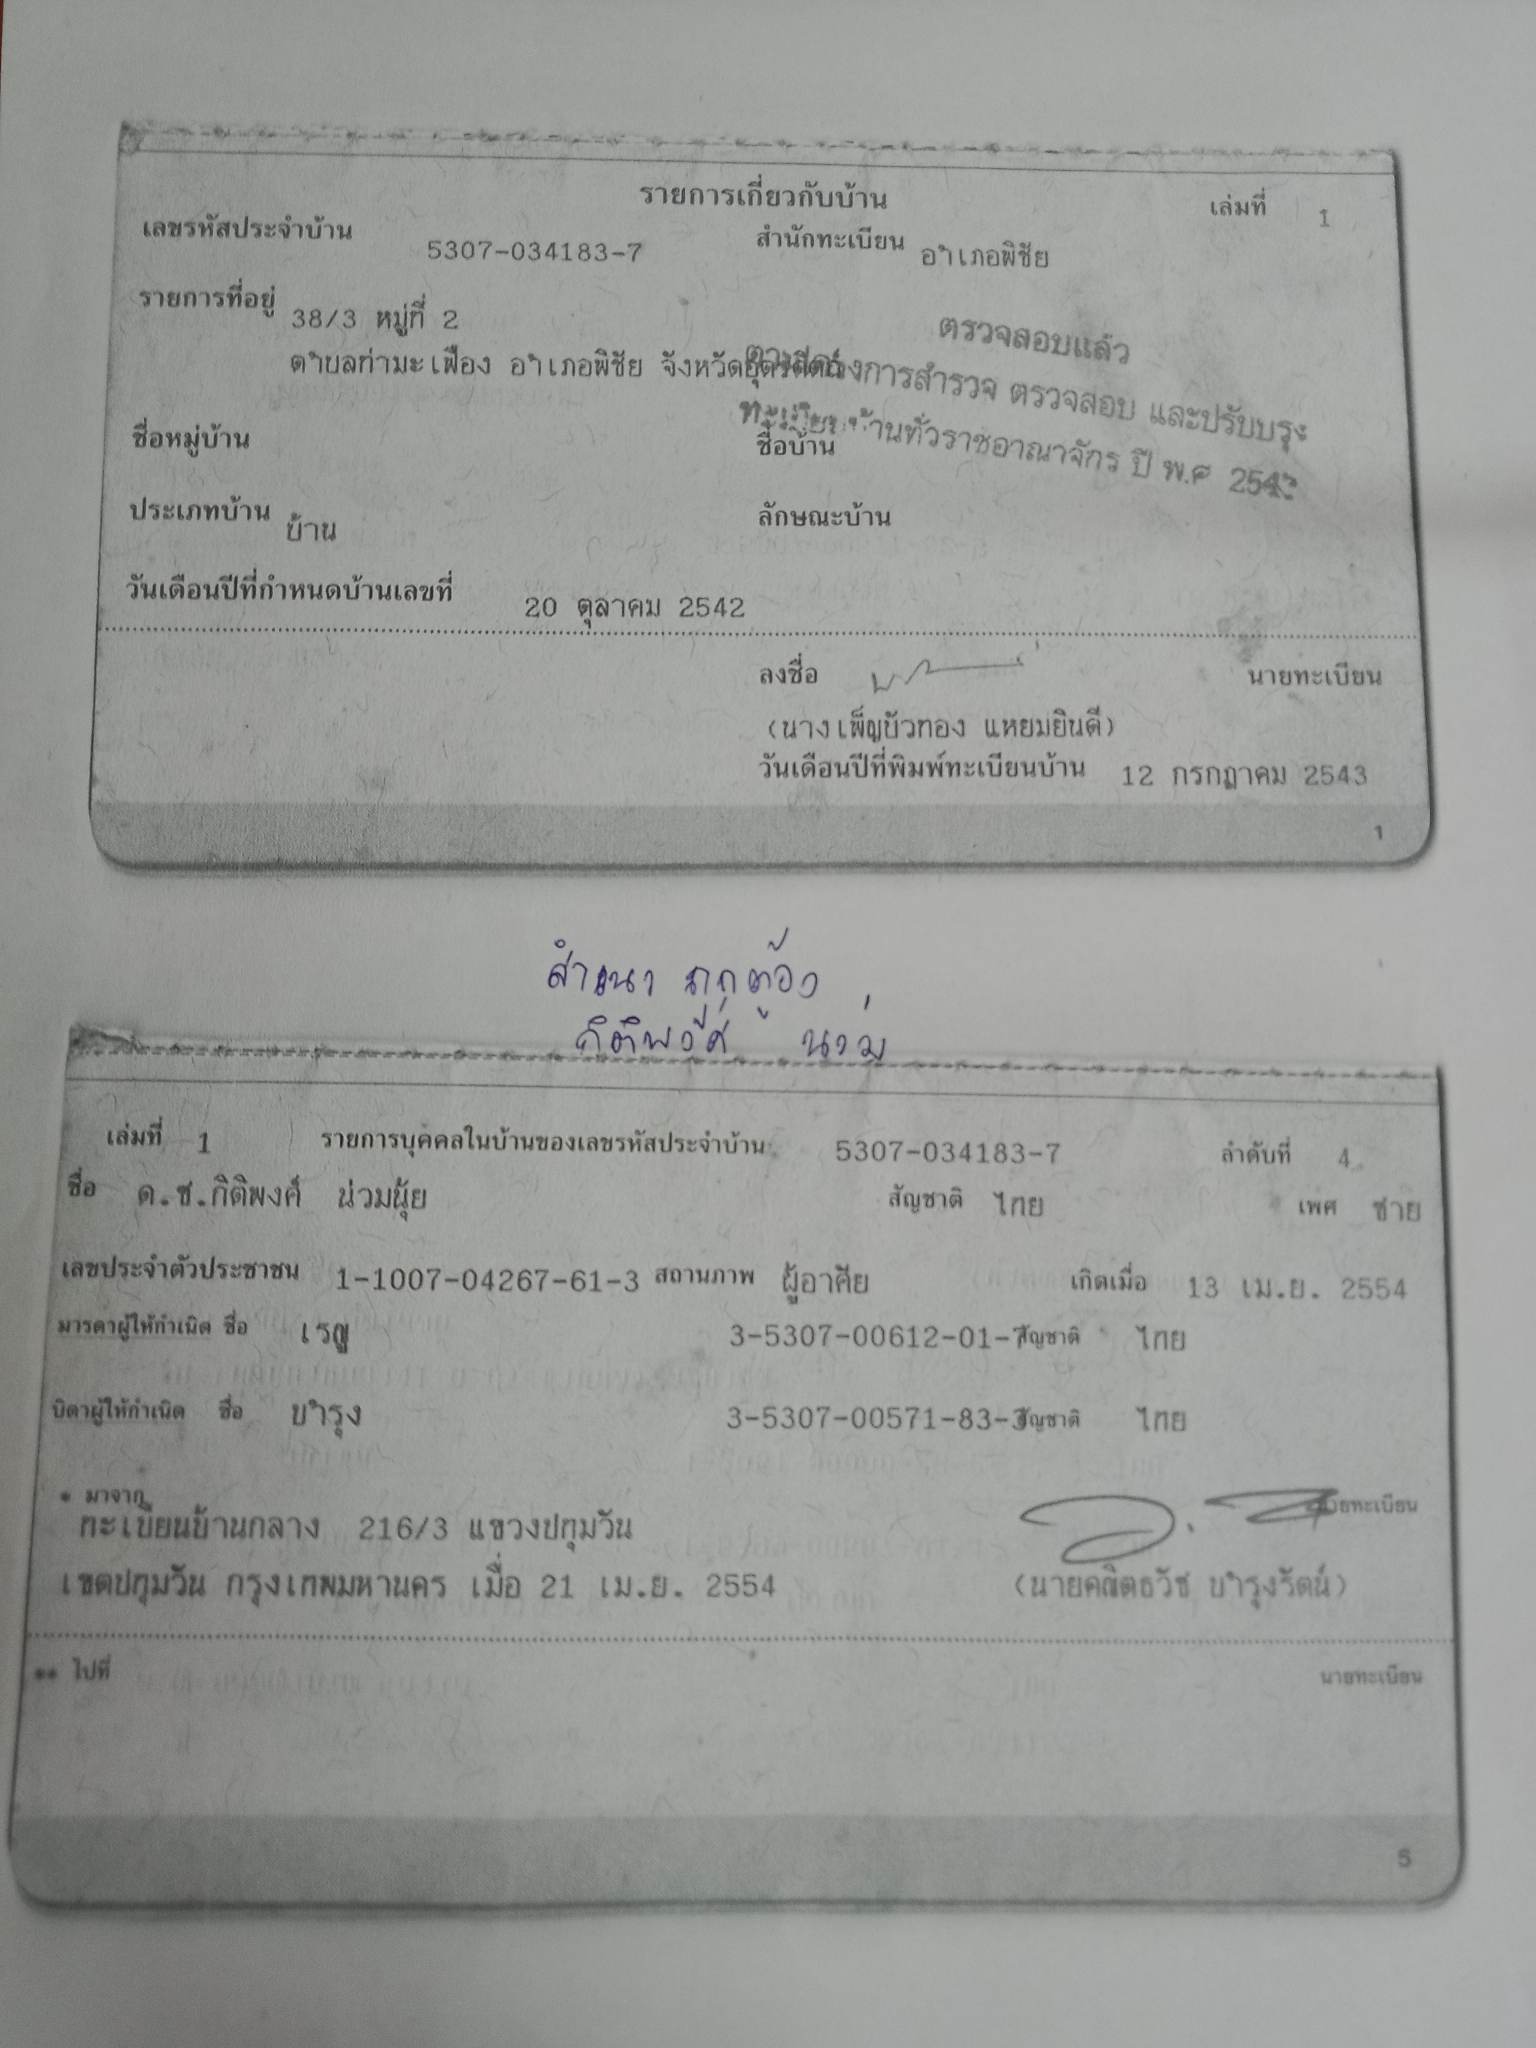 รายการเกี่ยวกับบ้าน เล่มที่ 1
เลขรหัสประจำบ้าน 5307-034183-7 สำนักทะเบียน อำเภอพิชัย
รายการที่อยู่ 38/3 หมู่ที่ 2
ตำบลท่ามะเฟือง อำเภอพิชัย จังหวัดอุตรดิตถ์
ตรวจสอบแล้ว
ตามโครงการสำรวจ ตรวจสอบ และปรับปรุง
ทะเบียนบ้านทั่วราชอาณาจักร ปี พ.ศ.
ชื่อหมู่บ้าน ชื่อบ้าน
ประเภทบ้าน บ้าน ลักษณะบ้าน
วันเดือนปีที่กำหนดบ้านเลขที่ 20 ตุลาคม 2542
ลงชื่อ นายทะเบียน
(นางเพ็ญบัวทอง แหยมยินดี)
วันเดือนปีที่พิมพ์ทะเบียนบ้าน 12 กรกฎาคม 2543
1
สำเนา ถูกต้อง
กิติพงศ์ น่วม
เล่มที่ 1 รายการบุคคลในบ้านของเลขรหัสประจำบ้าน 5307-034183-7 ลำดับที่ 4
ชื่อ ด.ช.กิติพงศ์ น่วมนุ้ย สัญชาติ ไทย เพศ ชาย
เลขประจำตัวประชาชน 1-1007-04267-61-3 สถานภาพ ผู้อาศัย เกิดเมื่อ 13 เม.ย. 2554
มารดาผู้ให้กำเนิด ชื่อ เรณู 3-5307-00612-01-7 สัญชาติ ไทย
บิดาผู้ให้กำเนิด ชื่อ บำรุง 3-5307-00571-83-3 สัญชาติ ไทย
* มาจาก นายทะเบียน
ทะเบียนบ้านกลาง 216/3 แขวงปทุมวัน
เขตปทุมวัน กรุงเทพมหานคร เมื่อ 21 เม.ย. 2554 (นายคณิตธวัช บำรุงรัตน์)
** ไปที่ นายทะเบียน
5